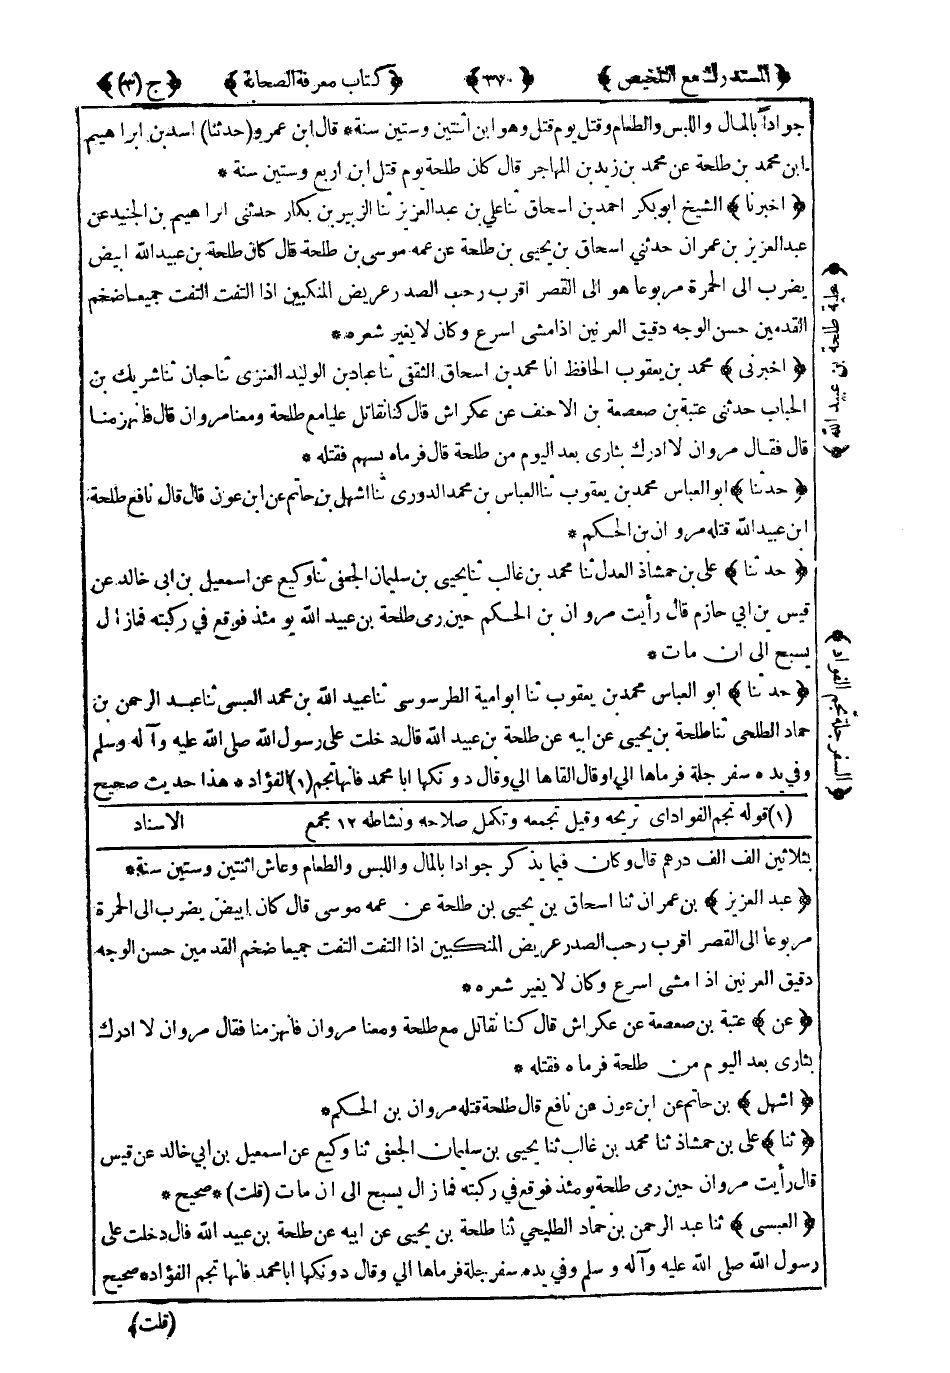 ﴿المستدرك مع التلخيص﴾ ﴿٣٧٠﴾ ﴿كتاب معرفة الصحابة﴾ ﴿ج (٣)﴾
جواداً بالمال واللبس والطعام وقتل يوم قتل وهو ابن اثنتين وستين سنة * قال ابن عمرو (حدثنا) اسد بن ابراهيم
ابن محمد بن طلحة عن محمد بن زيد بن المهاجر قال كان طلحة يوم قتل ابن اربع وستين سنة *
﴿اخبرنا﴾ الشيخ ابو بكر احمد بن اسحاق ثنا علي بن عبد العزيز ثنا الزبير بن بكار حدثنى ابراهيم بن الجنيد عن
عبد العزيز بن عمران حدثني اسحاق بن يحيى بن طلحة عن عمه موسى بن طلحة قال كان طلحة بن عبيد الله ابيض
يضرب الى الحمرة مربوعا هو الى القصر اقرب رحب الصدر عريض المنكبين اذا التفت التفت جميعا ضخم
القدمين حسن الوجه دقيق العرنين اذا مشى اسرع وكان لا يغير شعره *
﴿اخبرنى﴾ محمد بن يعقوب الحافظ انا محمد بن اسحاق الثقفى ثنا عباد بن الوليد العنزى ثنا حبان ثنا شريك بن
الحباب حدثنى عتبة بن صعصعة بن الاحنف عن عكراش قال كنا نقاتل عليا مع طلحة ومعنا مروان قال فانهزمنا
قال فقال مروان لا ادرك بثارى بعد اليوم من طلحة قال فرماه بسهم فقتله *
﴿حدثنا﴾ ابو العباس محمد بن يعقوب ثنا العباس بن محمد الدورى ثنا اشهل بن حاتم عن ابن عون قال قال نافع طلحة
ابن عبيد الله قتله مروان بن الحكم *
﴿حدثنا﴾ على بن حمشاذ العدل ثنا محمد بن غالب ثنا يحيى بن سليمان الجعفى ثنا وكيع عن اسمعيل بن ابى خالد عن
قيس بن ابي حازم قال رأيت مروان بن الحكم حين رمى طلحة بن عبيد الله يومئذ فوقع في ركبته فما زال
يسبح الى ان مات *
﴿حدثنا﴾ ابو العباس محمد بن يعقوب ثنا ابو امية الطرسوسى ثنا عبيد الله بن محمد العبسى ثنا عبد الرحمن بن
حماد الطلحى ثنا طلحة بن يحيى عن ابيه عن طلحة بن عبيد الله قال دخلت على رسول الله صلى الله عليه وآله وسلم
وفي يده سفرجلة فرماها الي او قال القاها الي وقال دونكها ابا محمد فانها تجم (١) الفؤاد * هذا حديث صحيح
(١) قوله تجم الفؤاد اى تريحه وقيل تجمعه وتكمل صلاحه ونشاطه ١٢ مجمع الاسناد
بثلاثين الف الف درهم قال وكان فيما يذكر جوادا بالمال واللبس والطعام وعاش اثنتين وستين سنة *
﴿عبد العزيز﴾ بن عمران ثنا اسحاق بن يحيى بن طلحة عن عمه موسى قال كان ابيض يضرب الى الحمرة
مربوعا الى القصر اقرب رحب الصدر عريض المنكبين اذا التفت التفت جميعا ضخم القدمين حسن الوجه
دقيق العرنين اذا مشى اسرع وكان لا يغير شعره *
﴿عن﴾ عتبة بن صعصعة عن عكراش قال كنا نقاتل مع طلحة ومعنا مروان فانهزمنا فقال مروان لا ادرك
بثارى بعد اليوم من طلحة فرماه فقتله *
﴿اشهل﴾ بن حاتم عن ابن عون عن نافع قال طلحة قتله مروان بن الحكم *
﴿ثنا﴾ على بن حمشاذ ثنا محمد بن غالب ثنا يحيى بن سليمان الجعفى ثنا وكيع عن اسمعيل بن ابي خالد عن قيس
قال رأيت مروان حين رمى طلحة يومئذ فوقع في ركبته فما زال يسبح الى ان مات (قلت) * صحيح *
﴿العبسى﴾ ثنا عبد الرحمن بن حماد الطليحي ثنا طلحة بن يحيى عن ابيه عن طلحة بن عبيد الله قال دخلت على
رسول الله صلى الله عليه وآله وسلم وفي يده سفرجلة فرماها الي وقال دونكها ابا محمد فانها تجم الفؤاد * صحيح
(قلت)
﴿حلية طلحة بن عبيد الله﴾
﴿السفرجلة تجم الفؤاد﴾